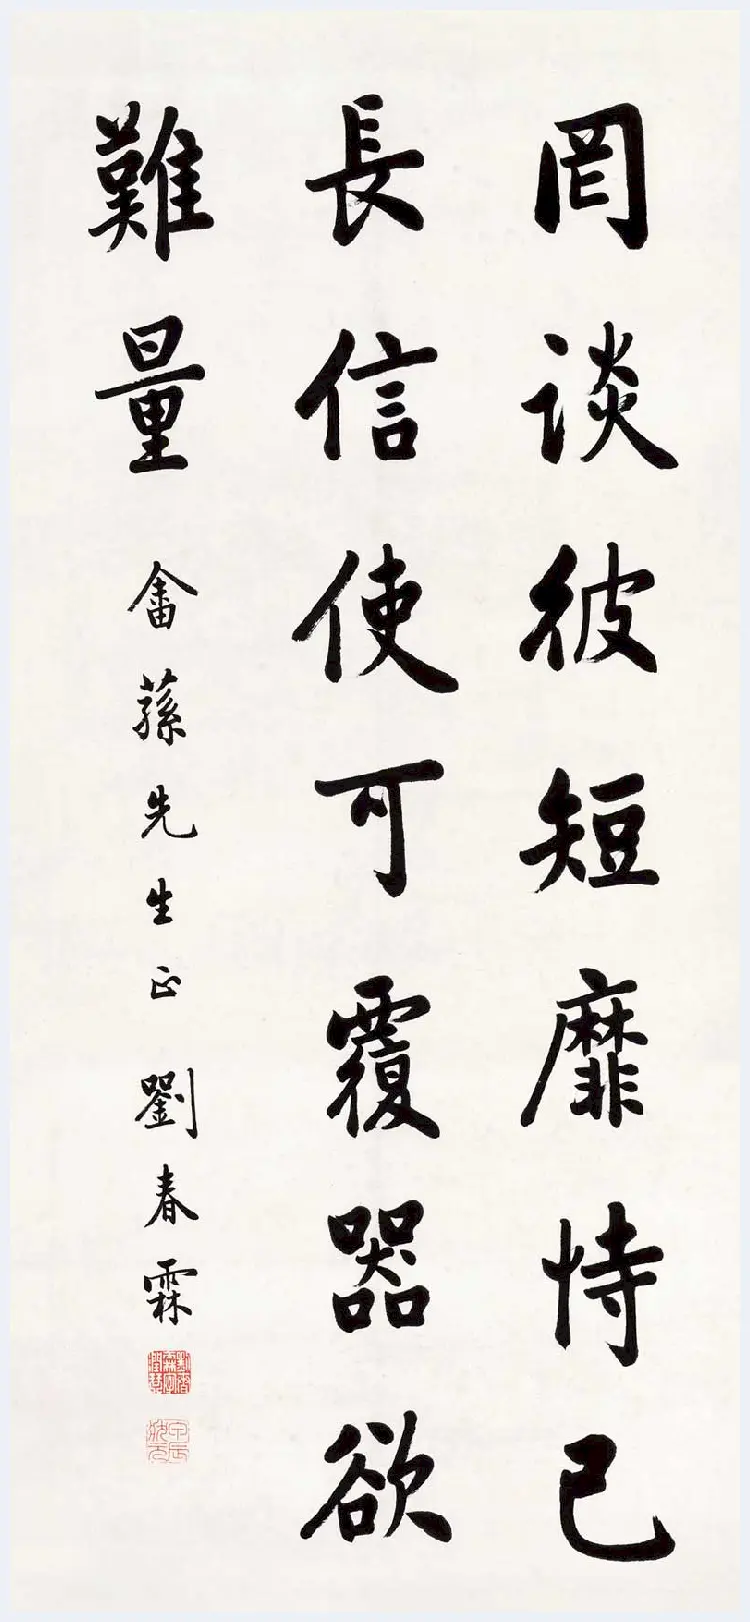 罔谈彼短靡恃己
長信使可覆器欲
難量
畬蓀先生正 劉春霖